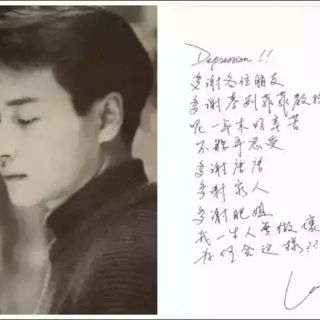 Depression !!
多謝各位朋友
多謝麥列菲菲教授
呢一年来的辛苦
不能再忍受
多謝唐唐
多謝家人
多謝肥姐
我一生人無做壞
为何会这樣??